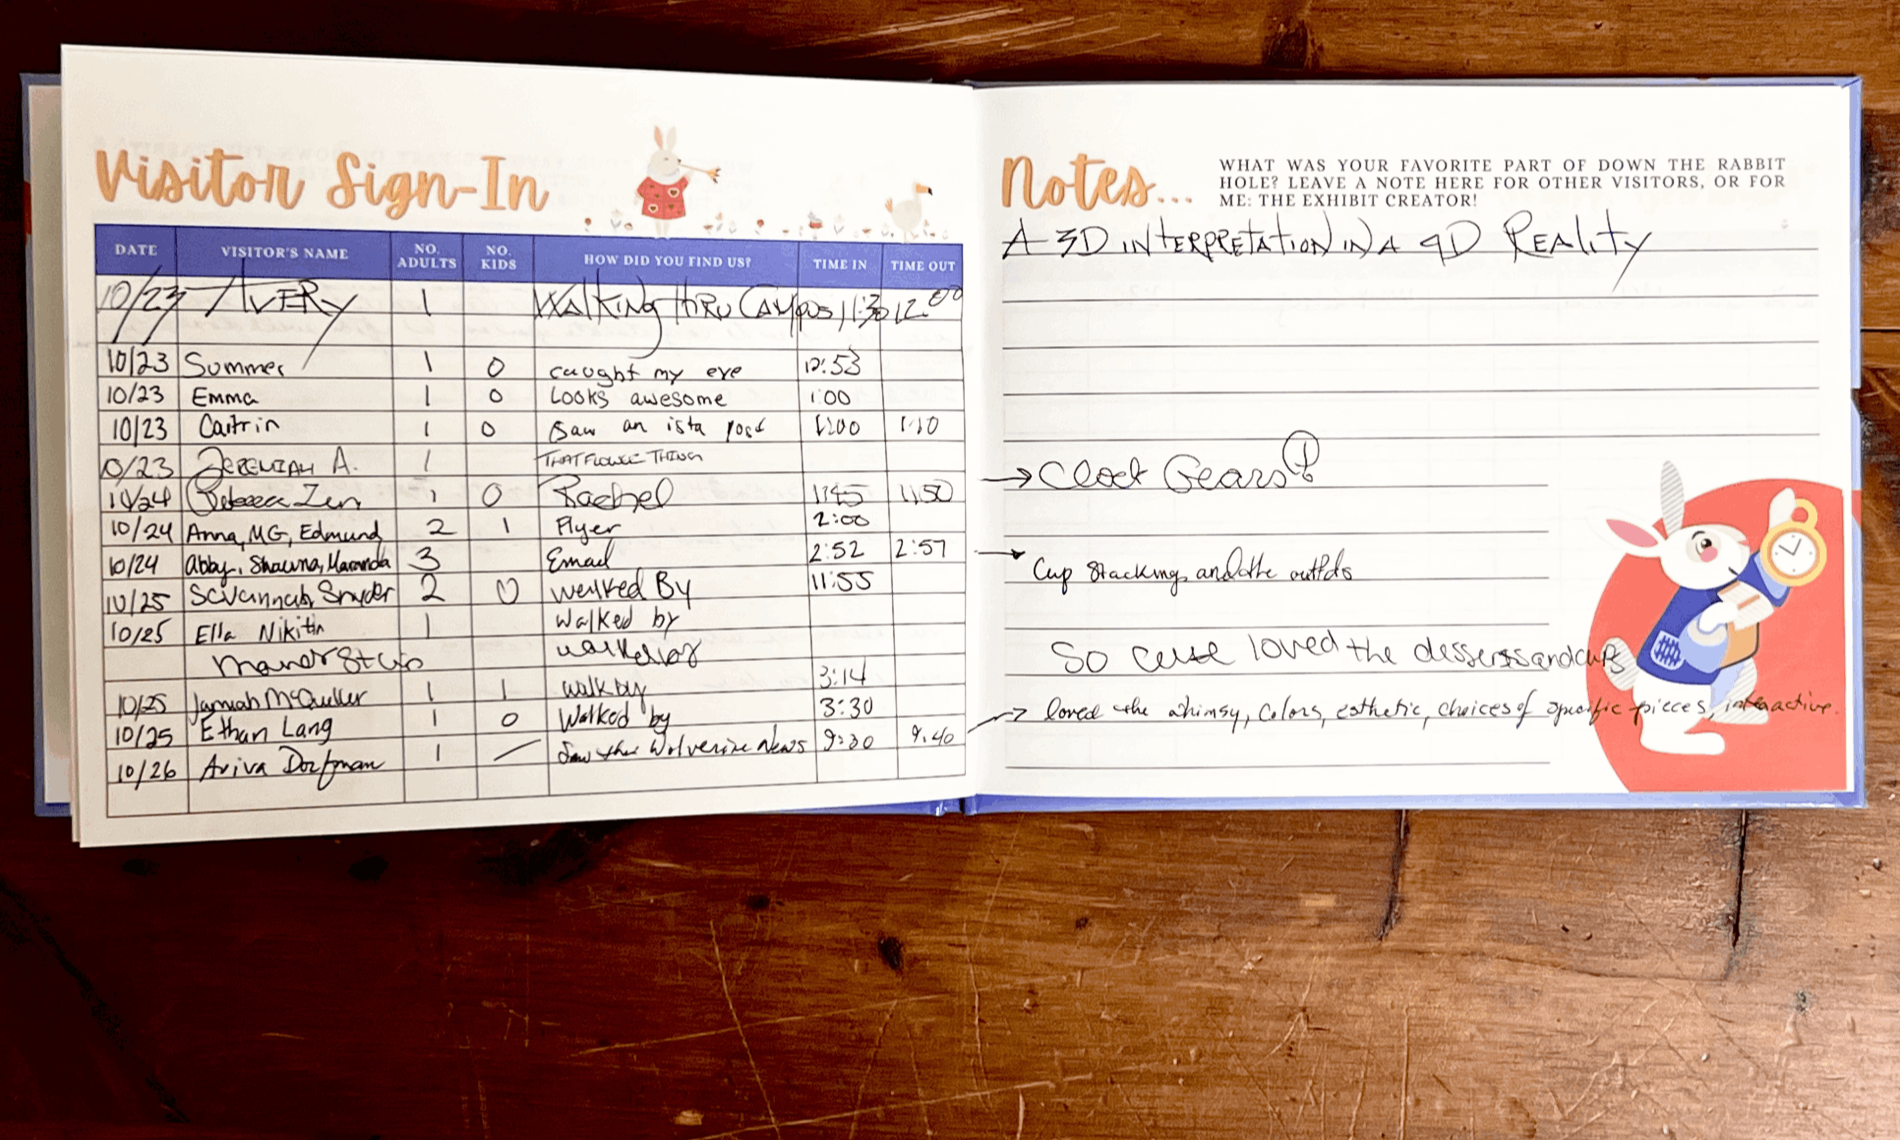 Visitor Sign-In
DATE VISITOR'S NAME NO. ADULTS NO. KIDS HOW DID YOU FIND US? TIME IN TIME OUT
10/23 AVERY 1 WALKING THRU CAMPUS 11:30 12:00
10/23 Summer 1 0 caught my eye 12:53
10/23 Emma 1 0 Looks awesome 1:00
10/23 Caitrin 1 0 Saw an ista post 1:00 1:10
10/23 JEREMIAH A. 1 THAT FLOWER THING
10/24 Rebecca Zen 1 0 Rachel 11:45 11:50
10/24 Anna, MG, Edmund 2 1 Flyer 2:00
10/24 Abby, Shawna, Maranda 3 Email 2:52 2:57
10/25 Savannah Snyder 2 0 walked By 11:55
10/25 Ella Nikitin 1 walked by
10/25 1 1 walk by 3:14
10/25 Ethan Lang 1 0 Walked by 3:30
10/26 Aviva Dorfman 1 Saw the Wolverine News 9:30 9:40
Notes...
WHAT WAS YOUR FAVORITE PART OF DOWN THE RABBIT
HOLE? LEAVE A NOTE HERE FOR OTHER VISITORS, OR FOR
ME: THE EXHIBIT CREATOR!
A 3D INTERPRETATION IN A 4D REALITY
→ Clock Gears!
→ Cup Stacking, and the outfits
So cute loved the desserts and cups
→ loved the whimsy, colors, esthetic, choices of specific pieces, interactive.